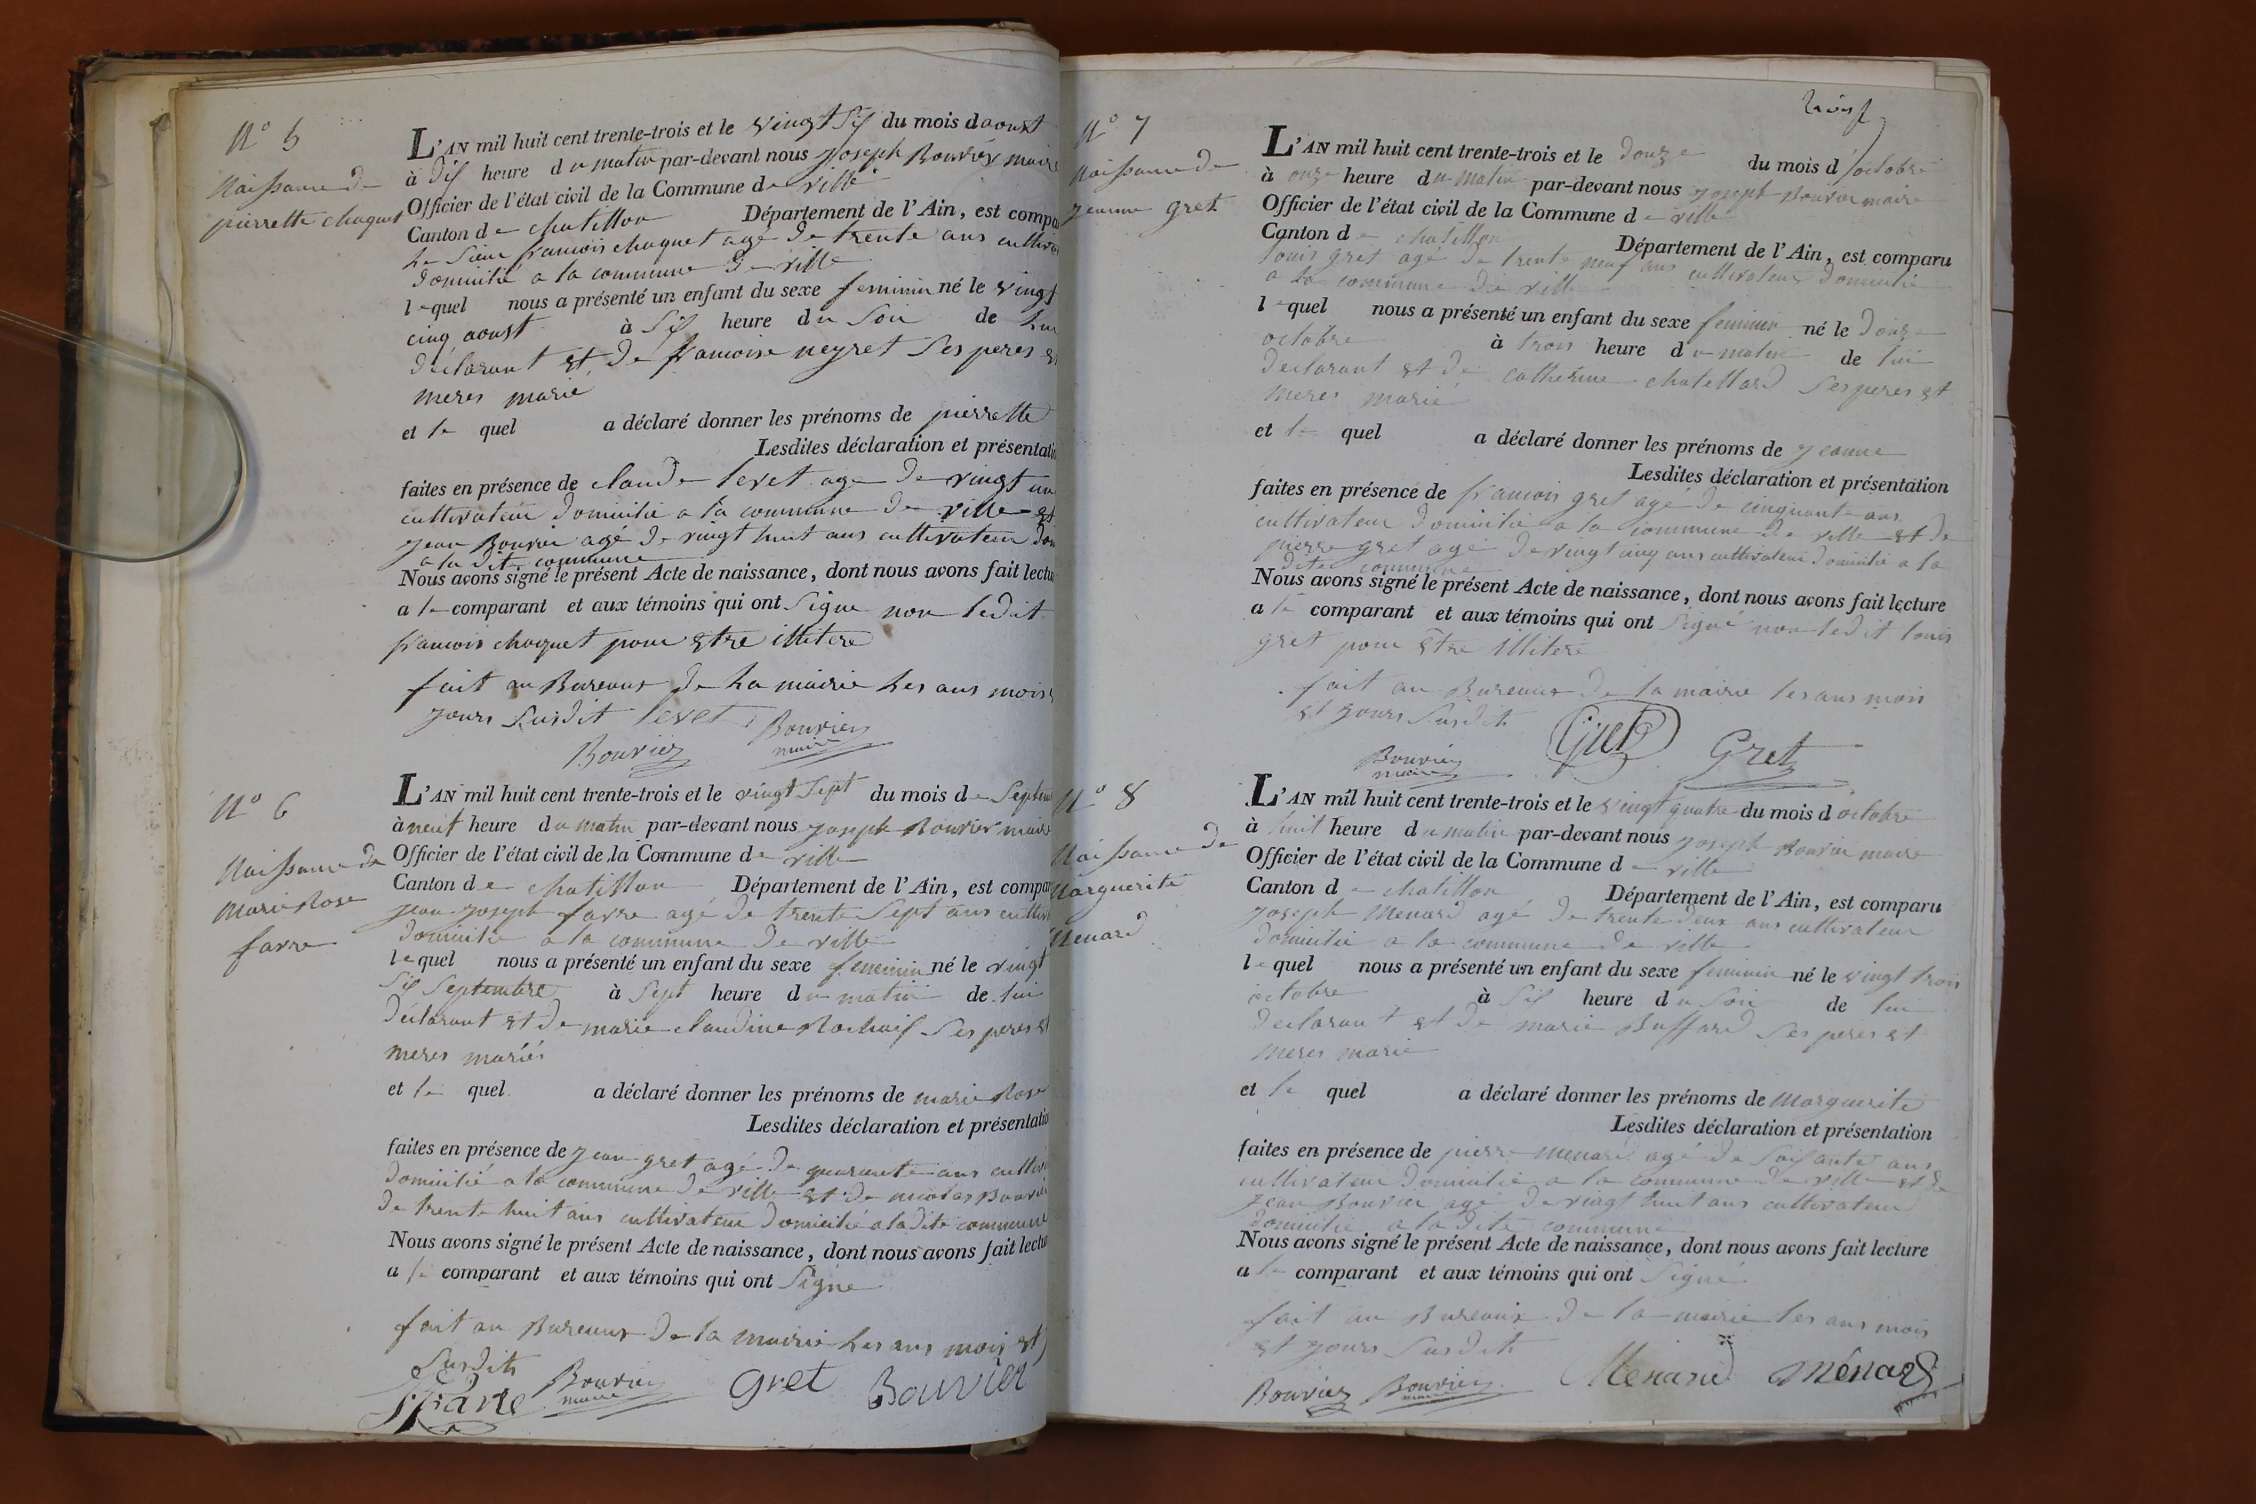 N° 5
Naissance de
pierrette choquet
L'AN mil huit cent trente-trois et le vingt Six du mois d aoust
à dix heure du matin par-devant nous joseph Bouvier maire
Officier de l'état civil de la Commune de ville
Canton de chatillon Département de l'Ain, est compa
Le Sieur francois choquet agé de trente ans cultiva
domicilié a la commune de ville
lequel nous a présenté un enfant du sexe feminin né le vingt
cinq aoust à Six heure du Soir de lui
déclarant et de francoise neyret Ses peres et
meres marié
et le quel a déclaré donner les prénoms de pierrette
Lesdites déclaration et présentatio
faites en présence de claude levet age de vingt un
cultivateur domicilié a la commune de ville et
jean Bouvier agé de vingt huit ans cultivateur dom
a la dite commune
Nous avons signé le présent Acte de naissance, dont nous avons fait lectu
a le comparant et aux témoins qui ont Signe non ledit
francois choquet pour etre illitere
fait au Bureaux de La mairie Les ans mois
jours Susdit levet Bouvier
Bouvier maire
N° 6
Naissance de
Marie Rose
favre
L'AN mil huit cent trente-trois et le vingt Sept du mois de Septem
à neuf heure du matin par-devant nous joseph Bouvier maire
Officier de l'état civil de la Commune de ville
Canton de chatillon Département de l'Ain, est compar
jean joseph favre agé de trente Sept ans cultiv
domicilié a la commune de ville
lequel nous a présenté un enfant du sexe feminin né le vingt
Six Septembre à Sept heure du matin de lui
déclarant et de marie claudine Rochaix Ses peres et
meres mariés
et le quel a déclaré donner les prénoms de marie Rose
Lesdites déclaration et présentatio
faites en présence de jean gret agé de quarante ans cultiv
domicilié a la commune de ville et de nicolas Bouvier
de trente huit ans cultivateur domicilié a la dite commune
Nous avons signé le présent Acte de naissance, dont nous avons fait lectu
a le comparant et aux témoins qui ont Signe
fait au Bureaux de la mairie Les ans mois et j
Susdits
Bouvier maire gret Bouvier
N° 7
Naissance de
jeanne gret
L'AN mil huit cent trente-trois et le douze du mois d'octobre
à onze heure du matin par-devant nous joseph Bouvier maire
Officier de l'état civil de la Commune de ville
Canton de chatillon Département de l'Ain, est comparu
louis gret agé de trente neuf ans cultivateur domicilié
a la commune de ville
lequel nous a présenté un enfant du sexe feminin né le douze
octobre à trois heure du matin de lui
declarant et de catherine chatellard Ses peres et
meres marié
et le quel a déclaré donner les prénoms de jeanne
Lesdites déclaration et présentation
faites en présence de francois gret agé de cinquante ans
cultivateur domicilié a la commune de ville et de
pierre gret agé de vingt cinq ans cultivateur domicilié a la
dite commune
Nous avons signé le présent Acte de naissance, dont nous avons fait lecture
a le comparant et aux témoins qui ont Signé non ledit louis
gret pour etre illiteré
fait au Bureaux de la mairie les ans mois
et jours Susdits
Bouvier maire Gret Gret
N° 8
Naissance de
Marguerite
Menard
L'AN mil huit cent trente-trois et le vingt quatre du mois d octobre
à huit heure du matin par-devant nous joseph Bouvier maire
Officier de l'état civil de la Commune de ville
Canton de chatillon Département de l'Ain, est comparu
joseph Menard agé de trente deux ans cultivateur
domicilié a la commune de ville
lequel nous a présenté un enfant du sexe feminin né le vingt trois
octobre à Six heure du Soir de lui
declarant et de marie Buffard Ses peres et
meres marié
et le quel a déclaré donner les prénoms de Marguerite
Lesdites déclaration et présentation
faites en présence de pierre menard agé de Soixante ans
cultivateur domicilié a la commune de ville et de
jean Bouvier agé de vingt huit ans cultivateur
domicilié a la dite commune
Nous avons signé le présent Acte de naissance, dont nous avons fait lecture
a le comparant et aux témoins qui ont Signé
fait au Bureaux de la mairie les ans mois
et jours Susdits
Bouvier Bouvier maire Menard Ménard